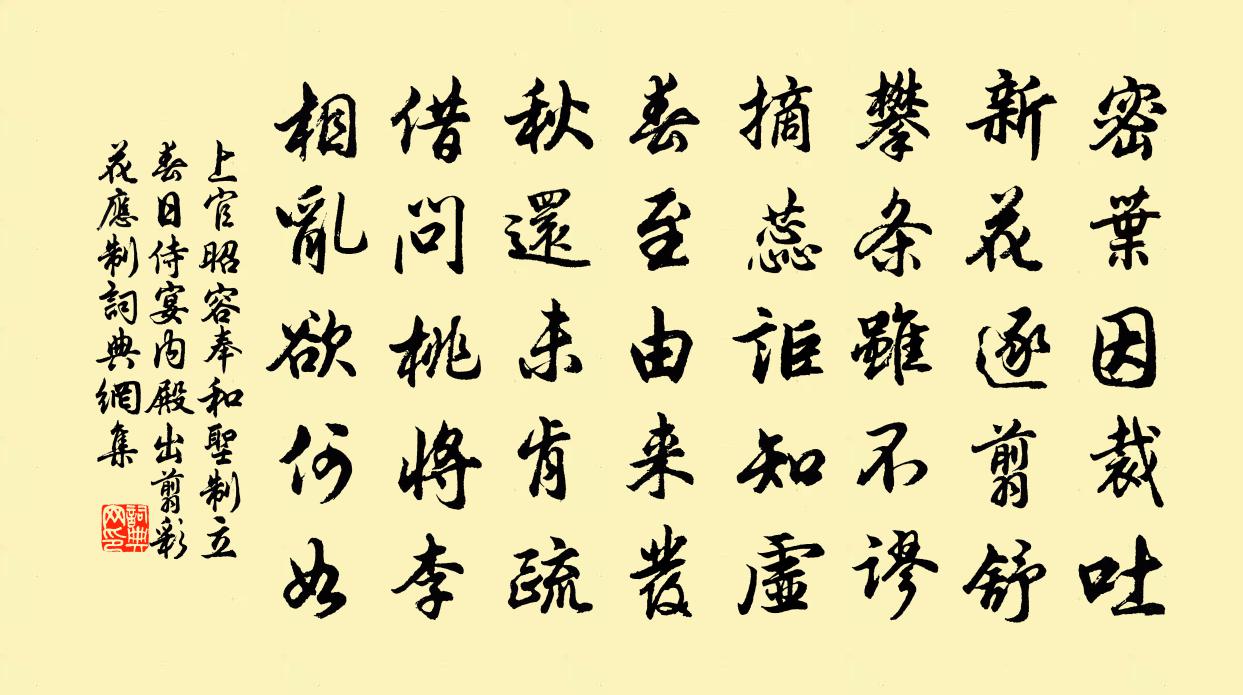 密葉因裁吐
新花逐翦舒
攀条雖不謬
摘蕊詎知虛
春至由来發
秋還未肯疏
借問桃將李
相亂欲何如
上官昭容奉和聖制立
春日侍宴内殿出翦彩
花應制詞典網集
詞典
网印